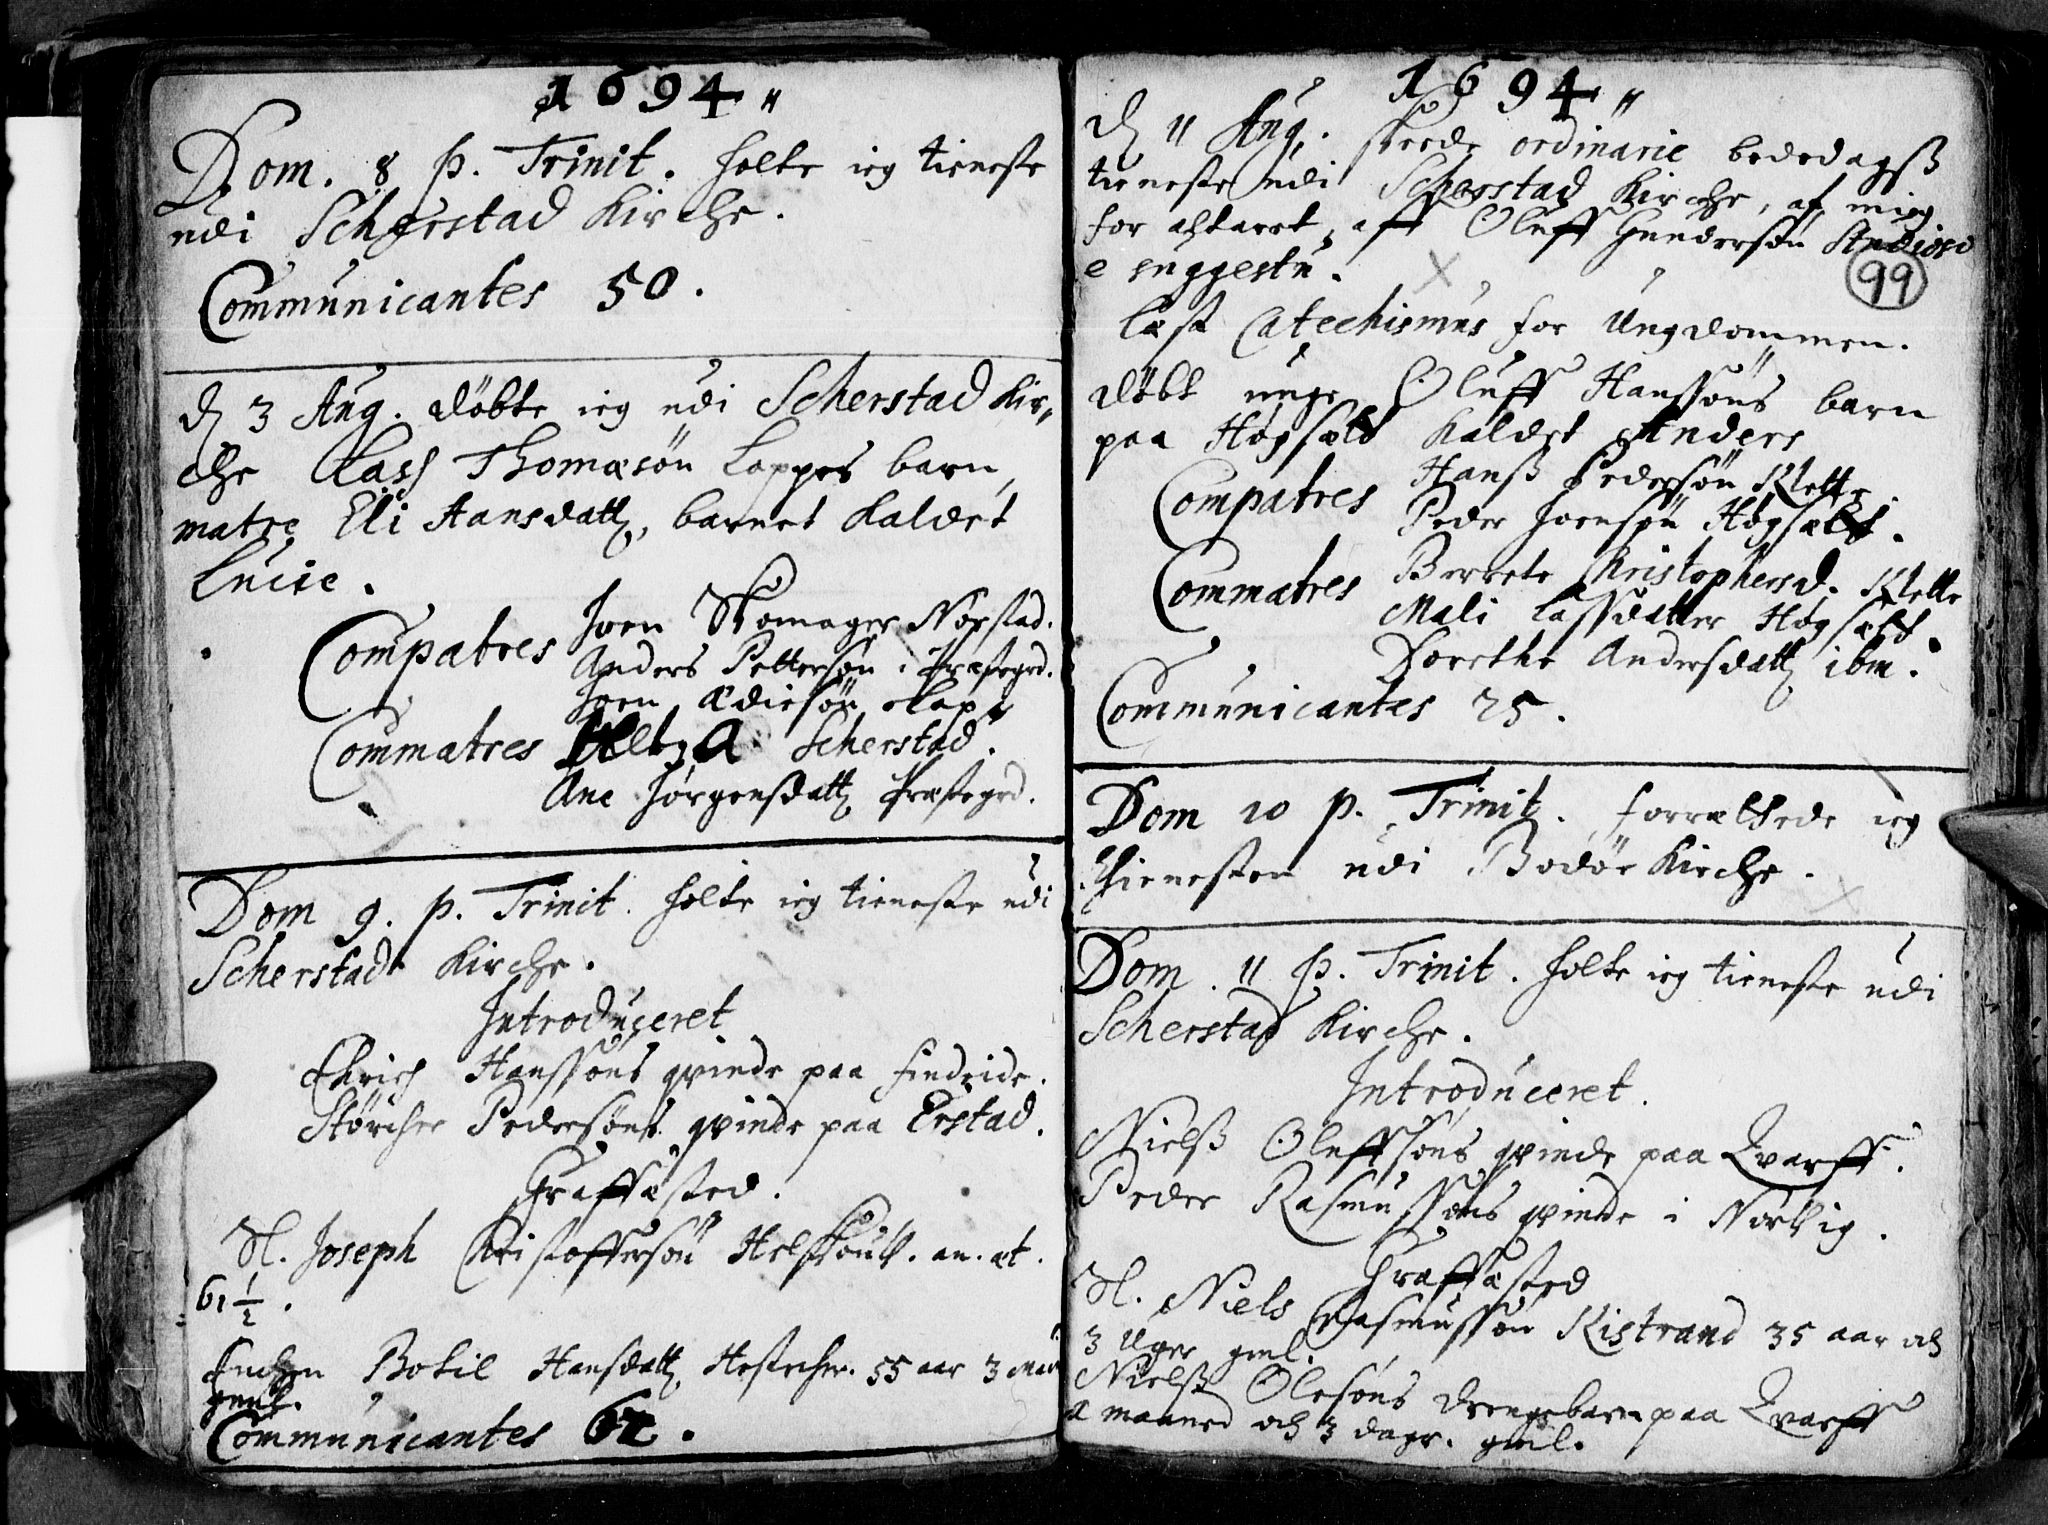 1694 "
Dom. 8 p. Trinit. holte ieg tieneste
udi Scherstad Kirche.
Communicantes 50.
d 3 Aug. döbte ieg udi Scherstad Kir,,
che Lass Thomæsön Lappes barn,
matre Eli Hansdatt, barnet kaldet
Lucie.
Compatres Joen Skomager Norstad.
Anders Pettersøn i Præstegrd.
Joen Ædiesön
Commatres Scherstad.
Ane Jørgensdatt Præstegrd.
Dom 9. p. Trinit. holte ieg tieneste udi
Scherstad Kirche.
Introduceret
Ehrich Hanssöns qvinde paa Findeide.
Størcher Pedersöns qvinde paa Erstad.
Graffæsted.
Sl. Joseph Christoffersön . an. æt.
61 1/2.
Enchen Botil Hansdatt 55 aar 3
gml.
Communicantes
1694 "
d 11 Aug. skeede ordinarie bededagß
tieneste udi Scherstad Kirche, af mig
for altaret, aff Oluff Gundersøn Studioso
e suggestu.
99
læst Catechismus for Ungdommen.
döbt unge Oluff Hanssöns barn
paa Høgsælt kaldet Anders
Compatres Hanß Pedersøn Klette.
Peder Joensøn Høgsælt.
Commatres Berrete Christophersd. Klette
Mali Lassdatter Høgsælt.
Dorethe Andersdatt ibm.
Communicantes 25.
Dom 10 p. Trinit. forrættede ieg
thienesten udi Bodöe Kirche.
Dom. 11 p. Trinit. holte ieg tieneste udi
Scherstad Kirche.
Introduceret.
Nielß Oluffsöns qvinde paa Qvarff.
Peder Rasmussöns qvinde i Norvig.
Graffæsted
Sl. Niels Rasmussön Kistrand 35 aar och
3 Uger gml.
Nielß Olesöns drengebarn paa Qvarff
a maaned och 3 dage. gml.